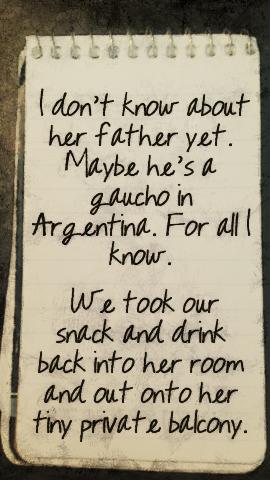 I don't know about
her father yet.
Maybe he's a
gaucho in
Argentina. For all I
know.
We took our
snack and drink
back into her room
and out onto her
tiny private balcony.